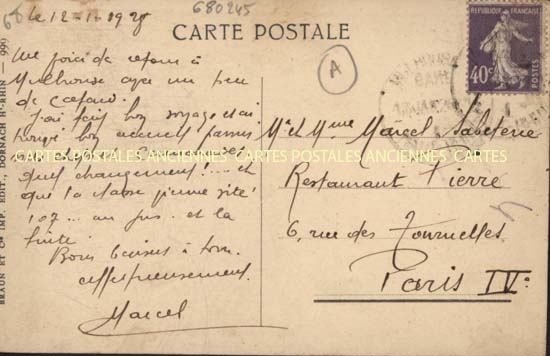 680245
le 12-1-1928
CARTE POSTALE
A
RÉPUBLIQUE FRANÇAISE
40c
POSTES
Me voici de retour à
Mulhouse avec un peu
de cafard.
J'ai fait bon voyage et ai
bon accueil parmi
CARTES POSTALES ANCIENNES CARTES POSTALES ANCIENNES CARTES
quel changement!.... et
que la classe vienne vite
107... au jus. et la
fuite.
Bons baisers à tous.
affectueusement.
Marcel
Mr et Mme Marcel
Restaurant Pierre
6, rue des Tournelles
Paris IVe
BRAUN ET Cie IMP. EDIT., DORNACH Ht-RHIN - 999